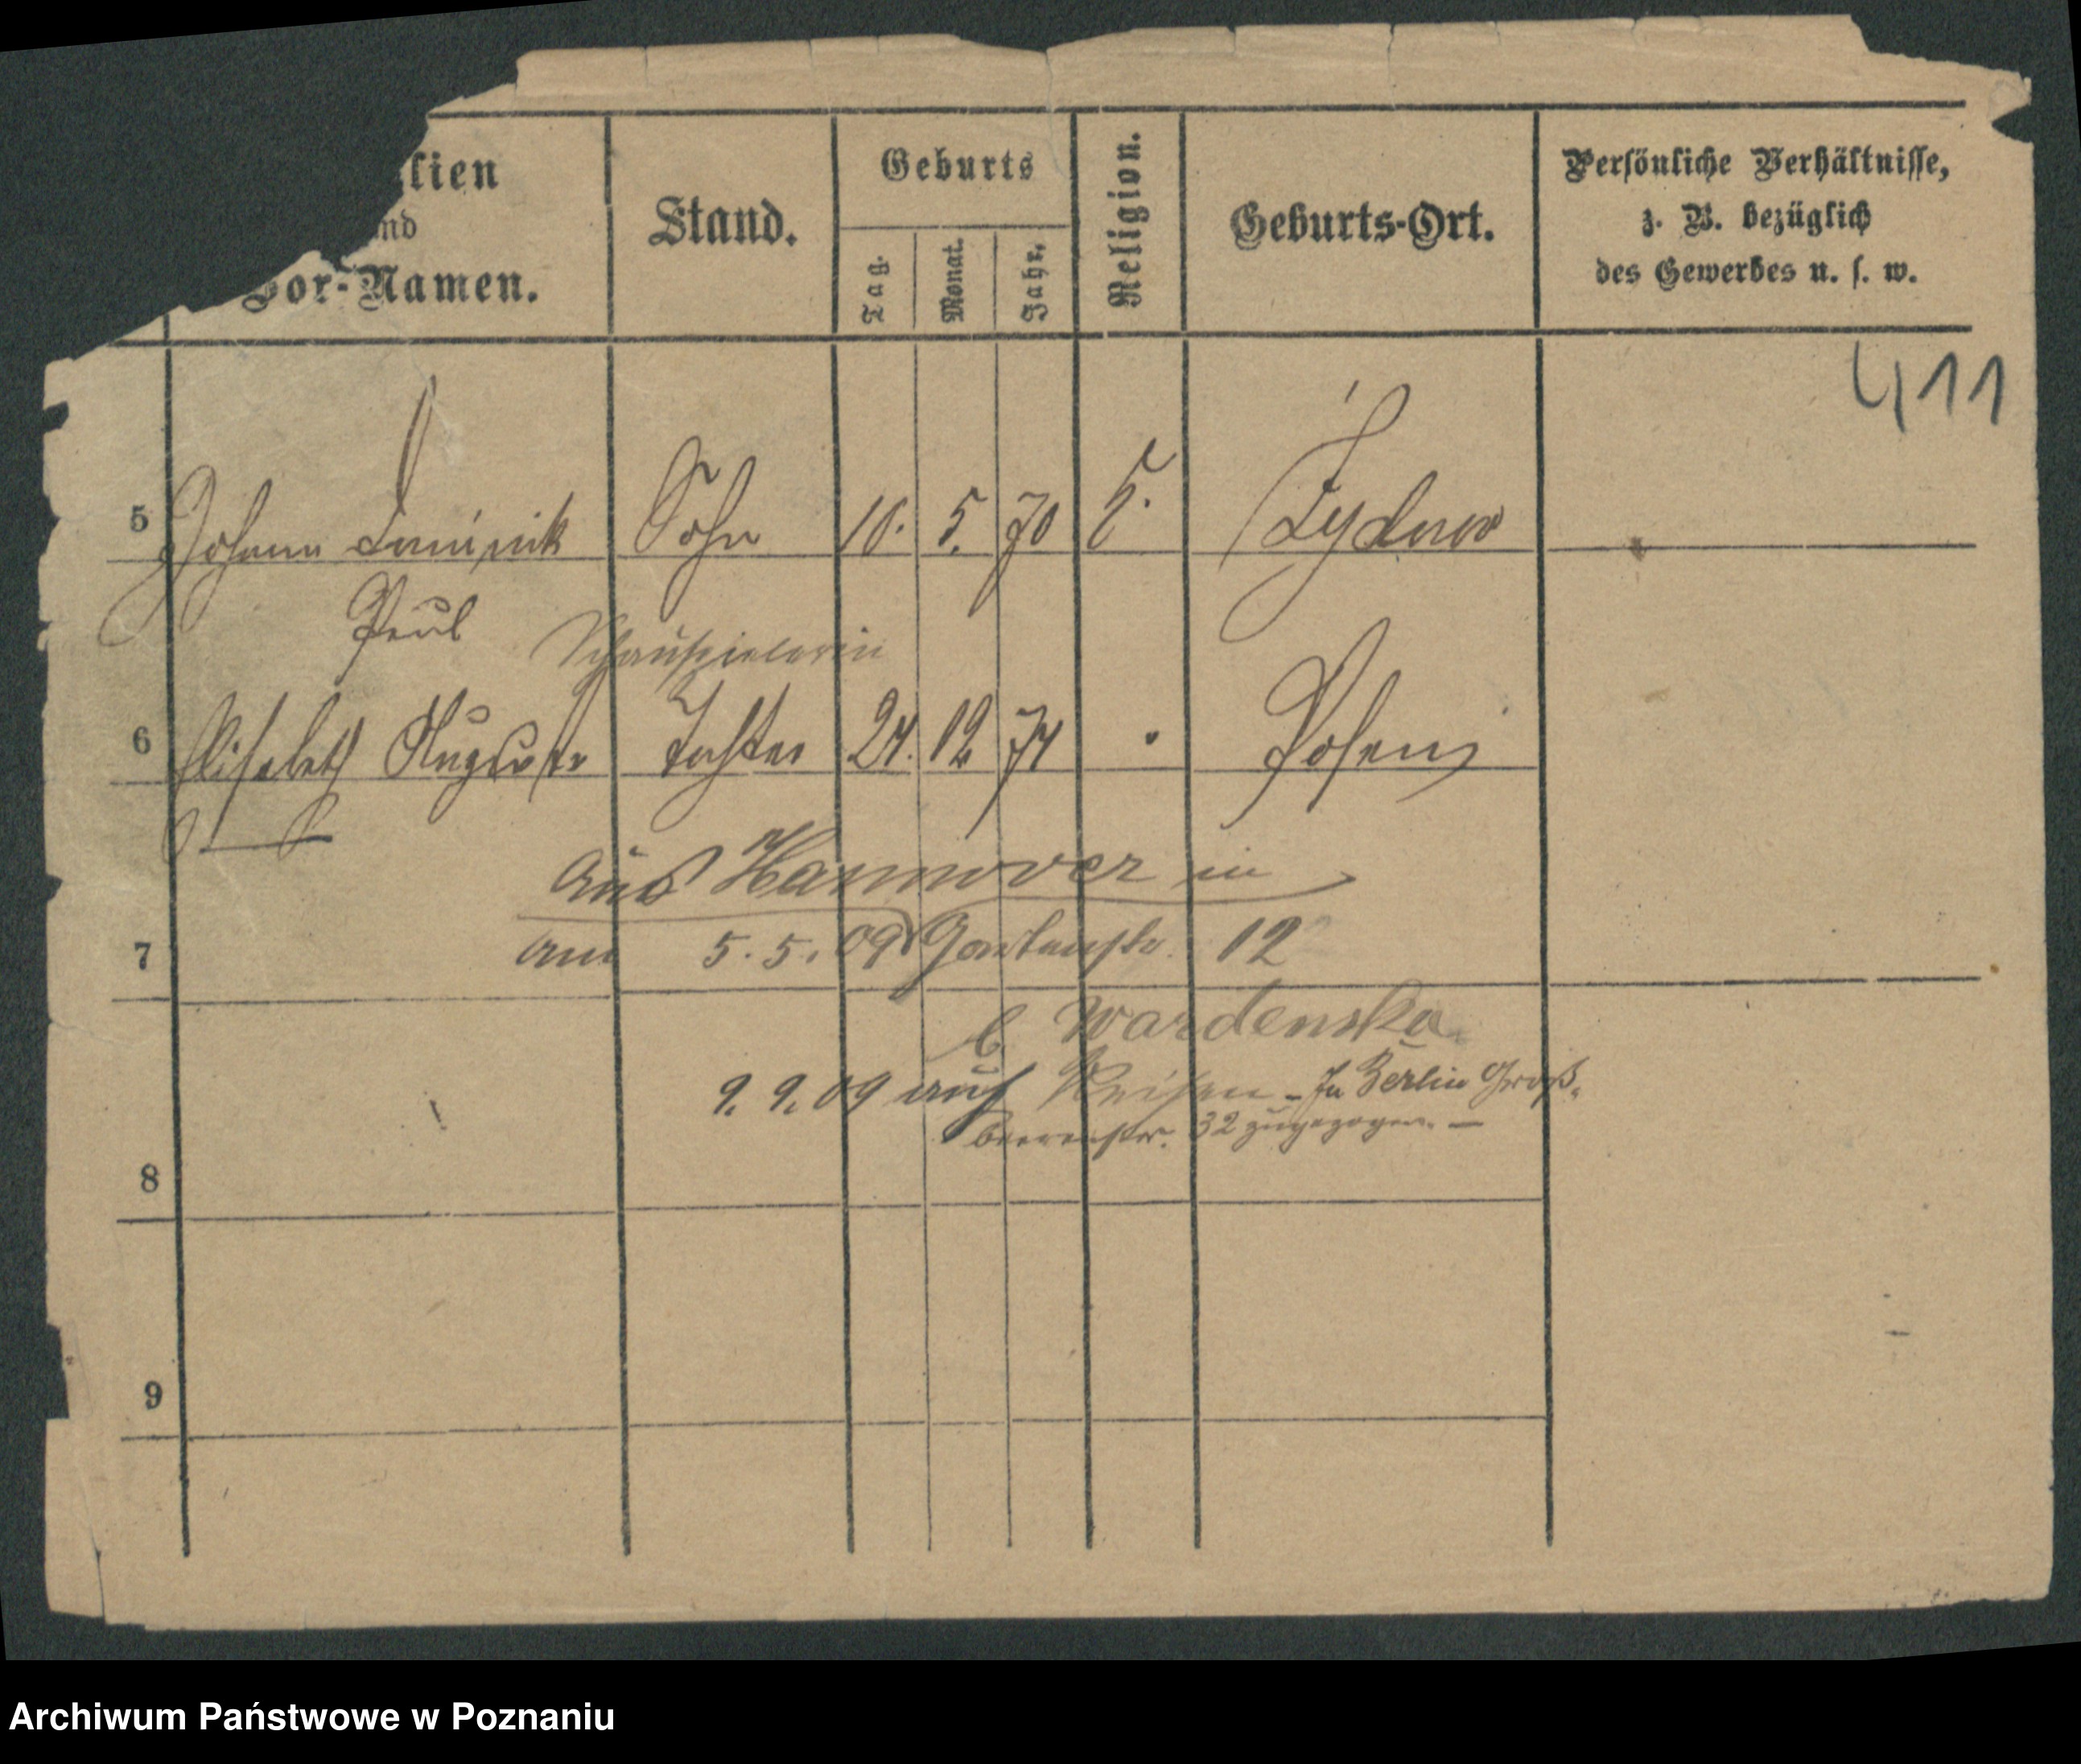 lien
nd
Vor-Namen.
Stand.
Geburts
Tag.
Monat.
Jahr.
Religion.
Geburts-Ort.
Persönliche Verhältnisse,
z. B. bezüglich
des Gewerbes u. s. w.
411
5 Johann Dominik Sohn 10. 5. 70
Paul
Schauspielerin
6 Elisabeth Auguste Tochter 24. 12 74 " Posen
Aus Hannover in
7 am 5. 5. 09 Gartenstr. 12
b Wardenska
9. 9. 09 auf Reisen - In Berlin Groß-
beerenstr. 32 zugezogen. -
8
9
Archiwum Państwowe w Poznaniu